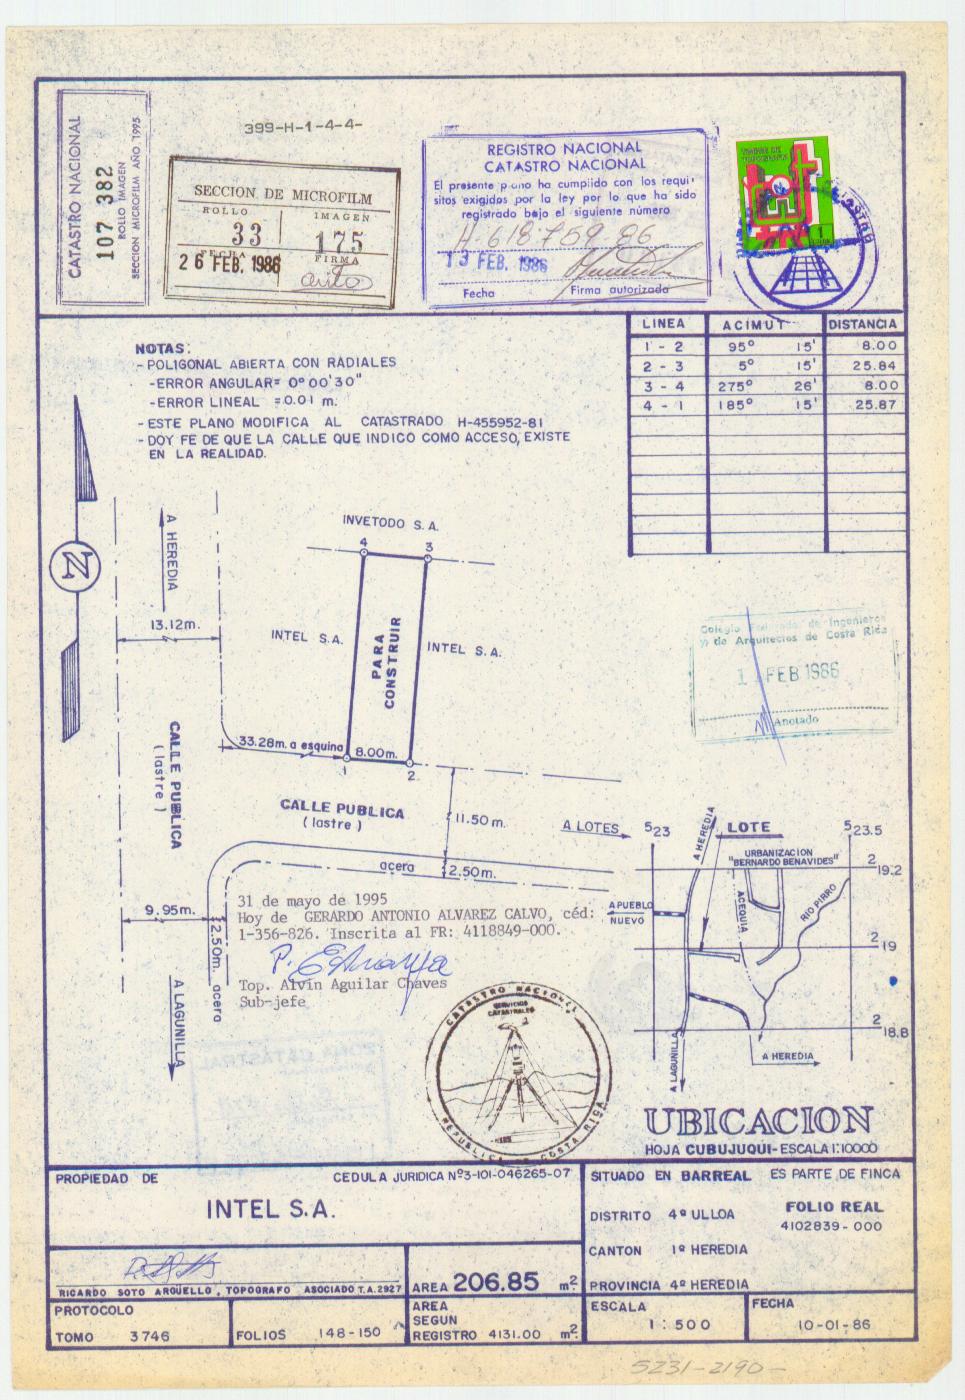 399-H-1-4-4-
CATASTRO NACIONAL
107 382
ROLLO IMAGEN
SECCION MICROFILM AÑO 1995
SECCION DE MICROFILM
ROLLO IMAGEN
33 175
FECHA FIRMA
26 FEB. 1986
REGISTRO NACIONAL
CATASTRO NACIONAL
El presente plano ha cumplido con los requi-
sitos exigidos por la ley por lo que ha sido
registrado bajo el siguiente número
H-618759-86
13 FEB. 1986
Fecha Firma autorizada
1
LINEA ACIMUT DISTANCIA
1 - 2 95° 15' 8.00
2 - 3 5° 15' 25.84
3 - 4 275° 26' 8.00
4 - 1 185° 15' 25.87
NOTAS:
-POLIGONAL ABIERTA CON RADIALES
-ERROR ANGULAR= 0°00'30"
-ERROR LINEAL =0.01 m.
-ESTE PLANO MODIFICA AL CATASTRADO H-455952-81
-DOY FE DE QUE LA CALLE QUE INDICO COMO ACCESO, EXISTE
EN LA REALIDAD.
N
A HEREDIA
INVETODO S.A.
4 3
13.12m.
INTEL S.A.
PARA
CONSTRUIR
INTEL S.A.
Colegio Federado de Ingenieros
y de Arquitectos de Costa Rica
FEB 1986
Anotado
33.28m. a esquina
8.00m.
1 2
CALLE PUBLICA
(lastre)
CALLE PUBLICA
(lastre)
11.50m.
A LOTES
acera
2.50m.
9.95m.
2.50m. acera
A LAGUNILLA
31 de mayo de 1995
Hoy de GERARDO ANTONIO ALVAREZ CALVO, céd:
1-356-826. Inscrita al FR: 4118849-000.
Top. Alvin Aguilar Chaves
Sub-jefe
CATASTRO NACIONAL
SERVICIOS
CATASTRALES
REPUBLICA DE COSTA RICA
523 A HEREDIA LOTE 523.5
URBANIZACION
"BERNARDO BENAVIDES"
219.2
A PUEBLO
NUEVO
ACEQUIA
RIO PIRRO
219
218.8
A LAGUNILLA
A HEREDIA
UBICACION
HOJA CUBUJUQUI-ESCALA 1:10000
PROPIEDAD DE CEDULA JURIDICA Nº3-101-046265-07
INTEL S.A.
RICARDO SOTO ARGUELLO, TOPOGRAFO ASOCIADO T.A.2927
AREA 206.85 m²
PROTOCOLO
TOMO 3746
FOLIOS 148-150
AREA
SEGUN
REGISTRO 4131.00 m²
SITUADO EN BARREAL ES PARTE DE FINCA
DISTRITO 4º ULLOA
FOLIO REAL
4102839-000
CANTON 1º HEREDIA
PROVINCIA 4º HEREDIA
ESCALA
1:500
FECHA
10-01-86
5231-2190-